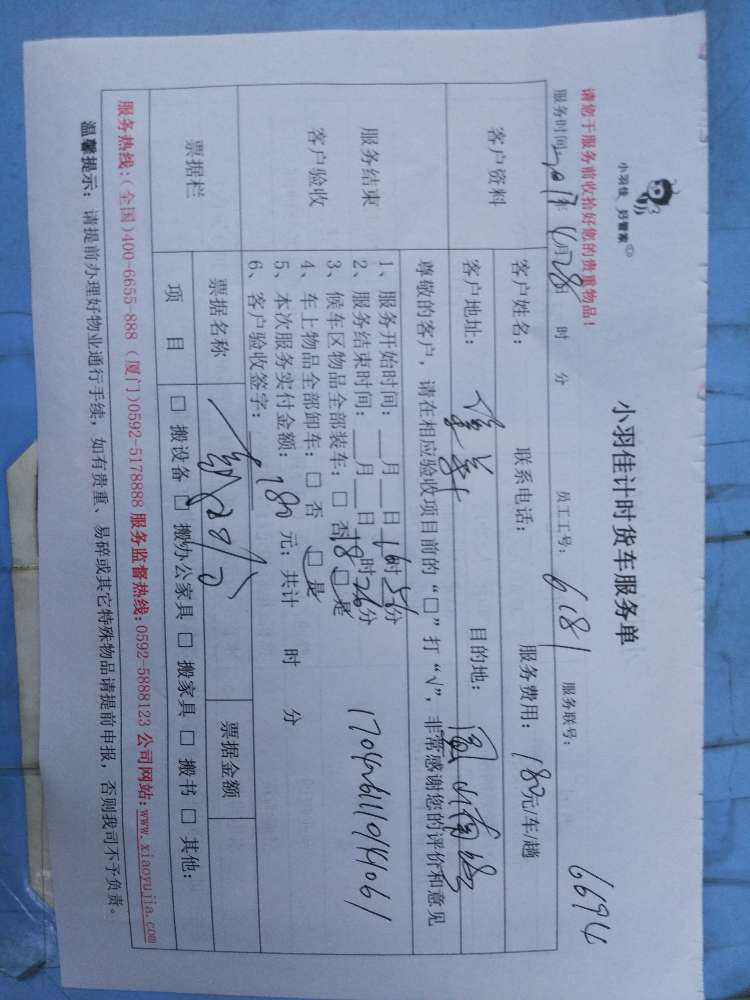 小羽佳 好管家
小羽佳计时货车服务单
6694
请您于服务前收拾好您的贵重物品！
服务时间：2017年4月28日 时 分 员工工号：6181 服务联号：
客户资料
客户姓名： 联系电话： 服务费用：180元/车/趟
客户地址： 目的地：
尊敬的客户，请在相应验收项目前的“□”打“√”，非常感谢您的评价和意见
服务结束
客户验收
1、服务开始时间：__月__日16时56分
2、服务结束时间：__月__日18时26分
3、候车区物品全部装车：□ 否 □ 是
4、车上物品全部卸车：□ 否 □ 是
5、本次服务实付金额：180元；共计 时 分
6、客户验收签字：
票据栏
票据名称 票据金额
项 目 □ 搬设备 □ 搬办公家具 □ 搬家具 □ 搬书 □ 其他：
服务热线：(全国)400-6655-888 (厦门)0592-5178888 服务监督热线：0592-5888123 公司网站：www.xiaoyujia.com
温馨提示：请提前办理好物业通行手续，如有贵重、易碎或其它特殊物品请提前申报，否则我司不予负责。